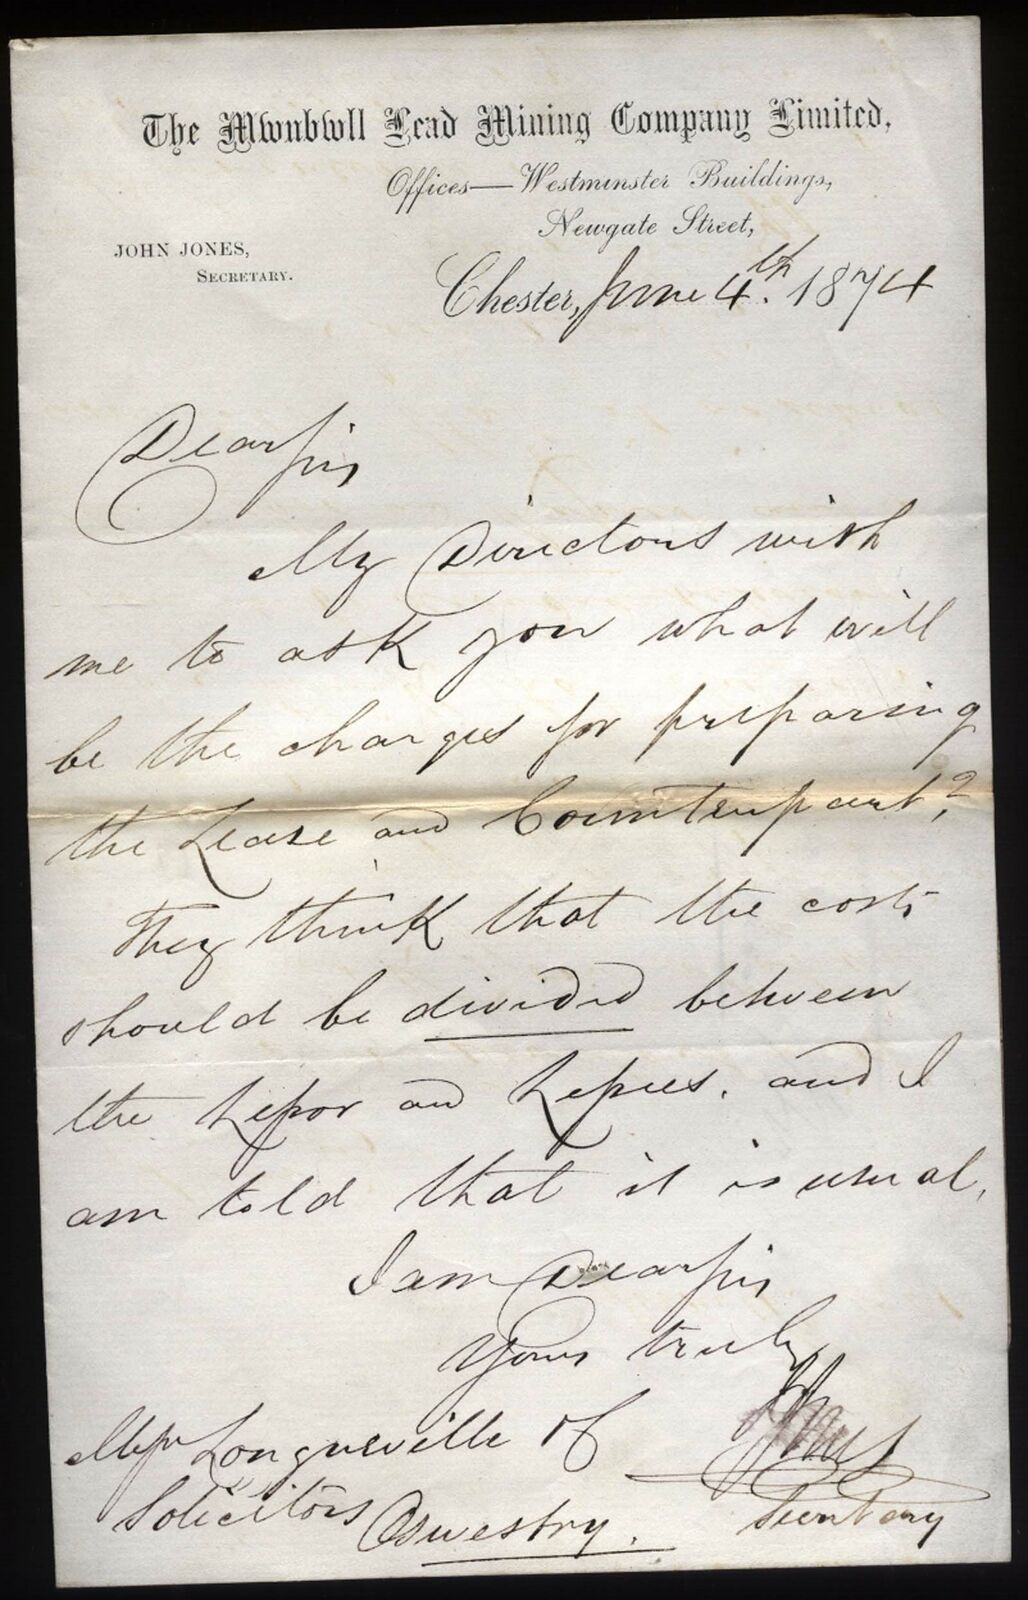 The Mwnbwll Lead Mining Company Limited,
Offices—Westminster Buildings,
Newgate Street,
JOHN JONES,
SECRETARY.
Chester, June 4th. 1874
Dear Sir
My Directors wish
me to ask you what will
be the charges for preparing
the Lease and Counterpart?
They think that the costs
should be divided between
the Lessor and Lessees. and I
am told that it is usual.
I am Dear Sir
Yours truly
Jones
Messrs Longueville &
Solicitors
Oswestry.
Secretary